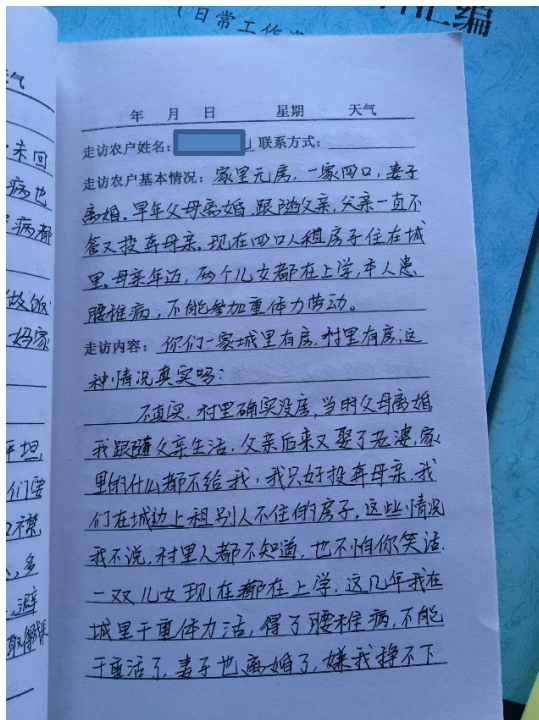 (日常工作
汇编
年 月 日 星期 天气
走访农户姓名: 联系方式:
走访农户基本情况:家里无房,一家四口,妻子
离婚。早年父母离婚,跟随父亲,父亲一直不
管又投奔母亲。现在四口人租房子住在城
里,母亲年迈,两个儿女都在上学,本人患
腰椎病,不能参加重体力劳动。
走访内容:你们一家城里有房,村里有房,这
种情况真实吗?
不真实,村里确实没房,当时父母离婚
我跟随父亲生活,父亲后来又娶了老婆,家
里的什么都不给我,我只好投奔母亲,我
们在城边上租别人不住的房子。这些情况
我不说,村里人都不知道,也不怕你笑话.
一双儿女现在都在上学,这几年我在
城里干重体力活,得了腰椎病,不能
干重活了,妻子也离婚了,嫌我挣不下
天气
未回
病也
病都
做的
妈家
平坦,
们要
多
避